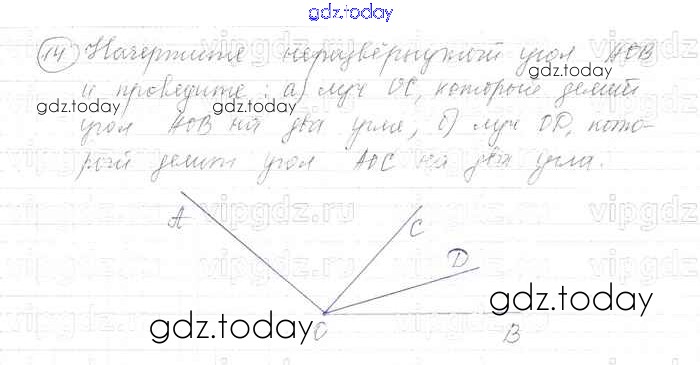 gdz.today
14 Начертите неразвёрнутый угол АОВ
gdz.today
и проведите: а) луч ОС, который делит
gdz.today gdz.today
угол АОВ на два угла, б) луч OD, кото-
рый делит угол АОС на два угла.
A
C
D
gdz.today
gdz.today
O
B
vipgdz.ru